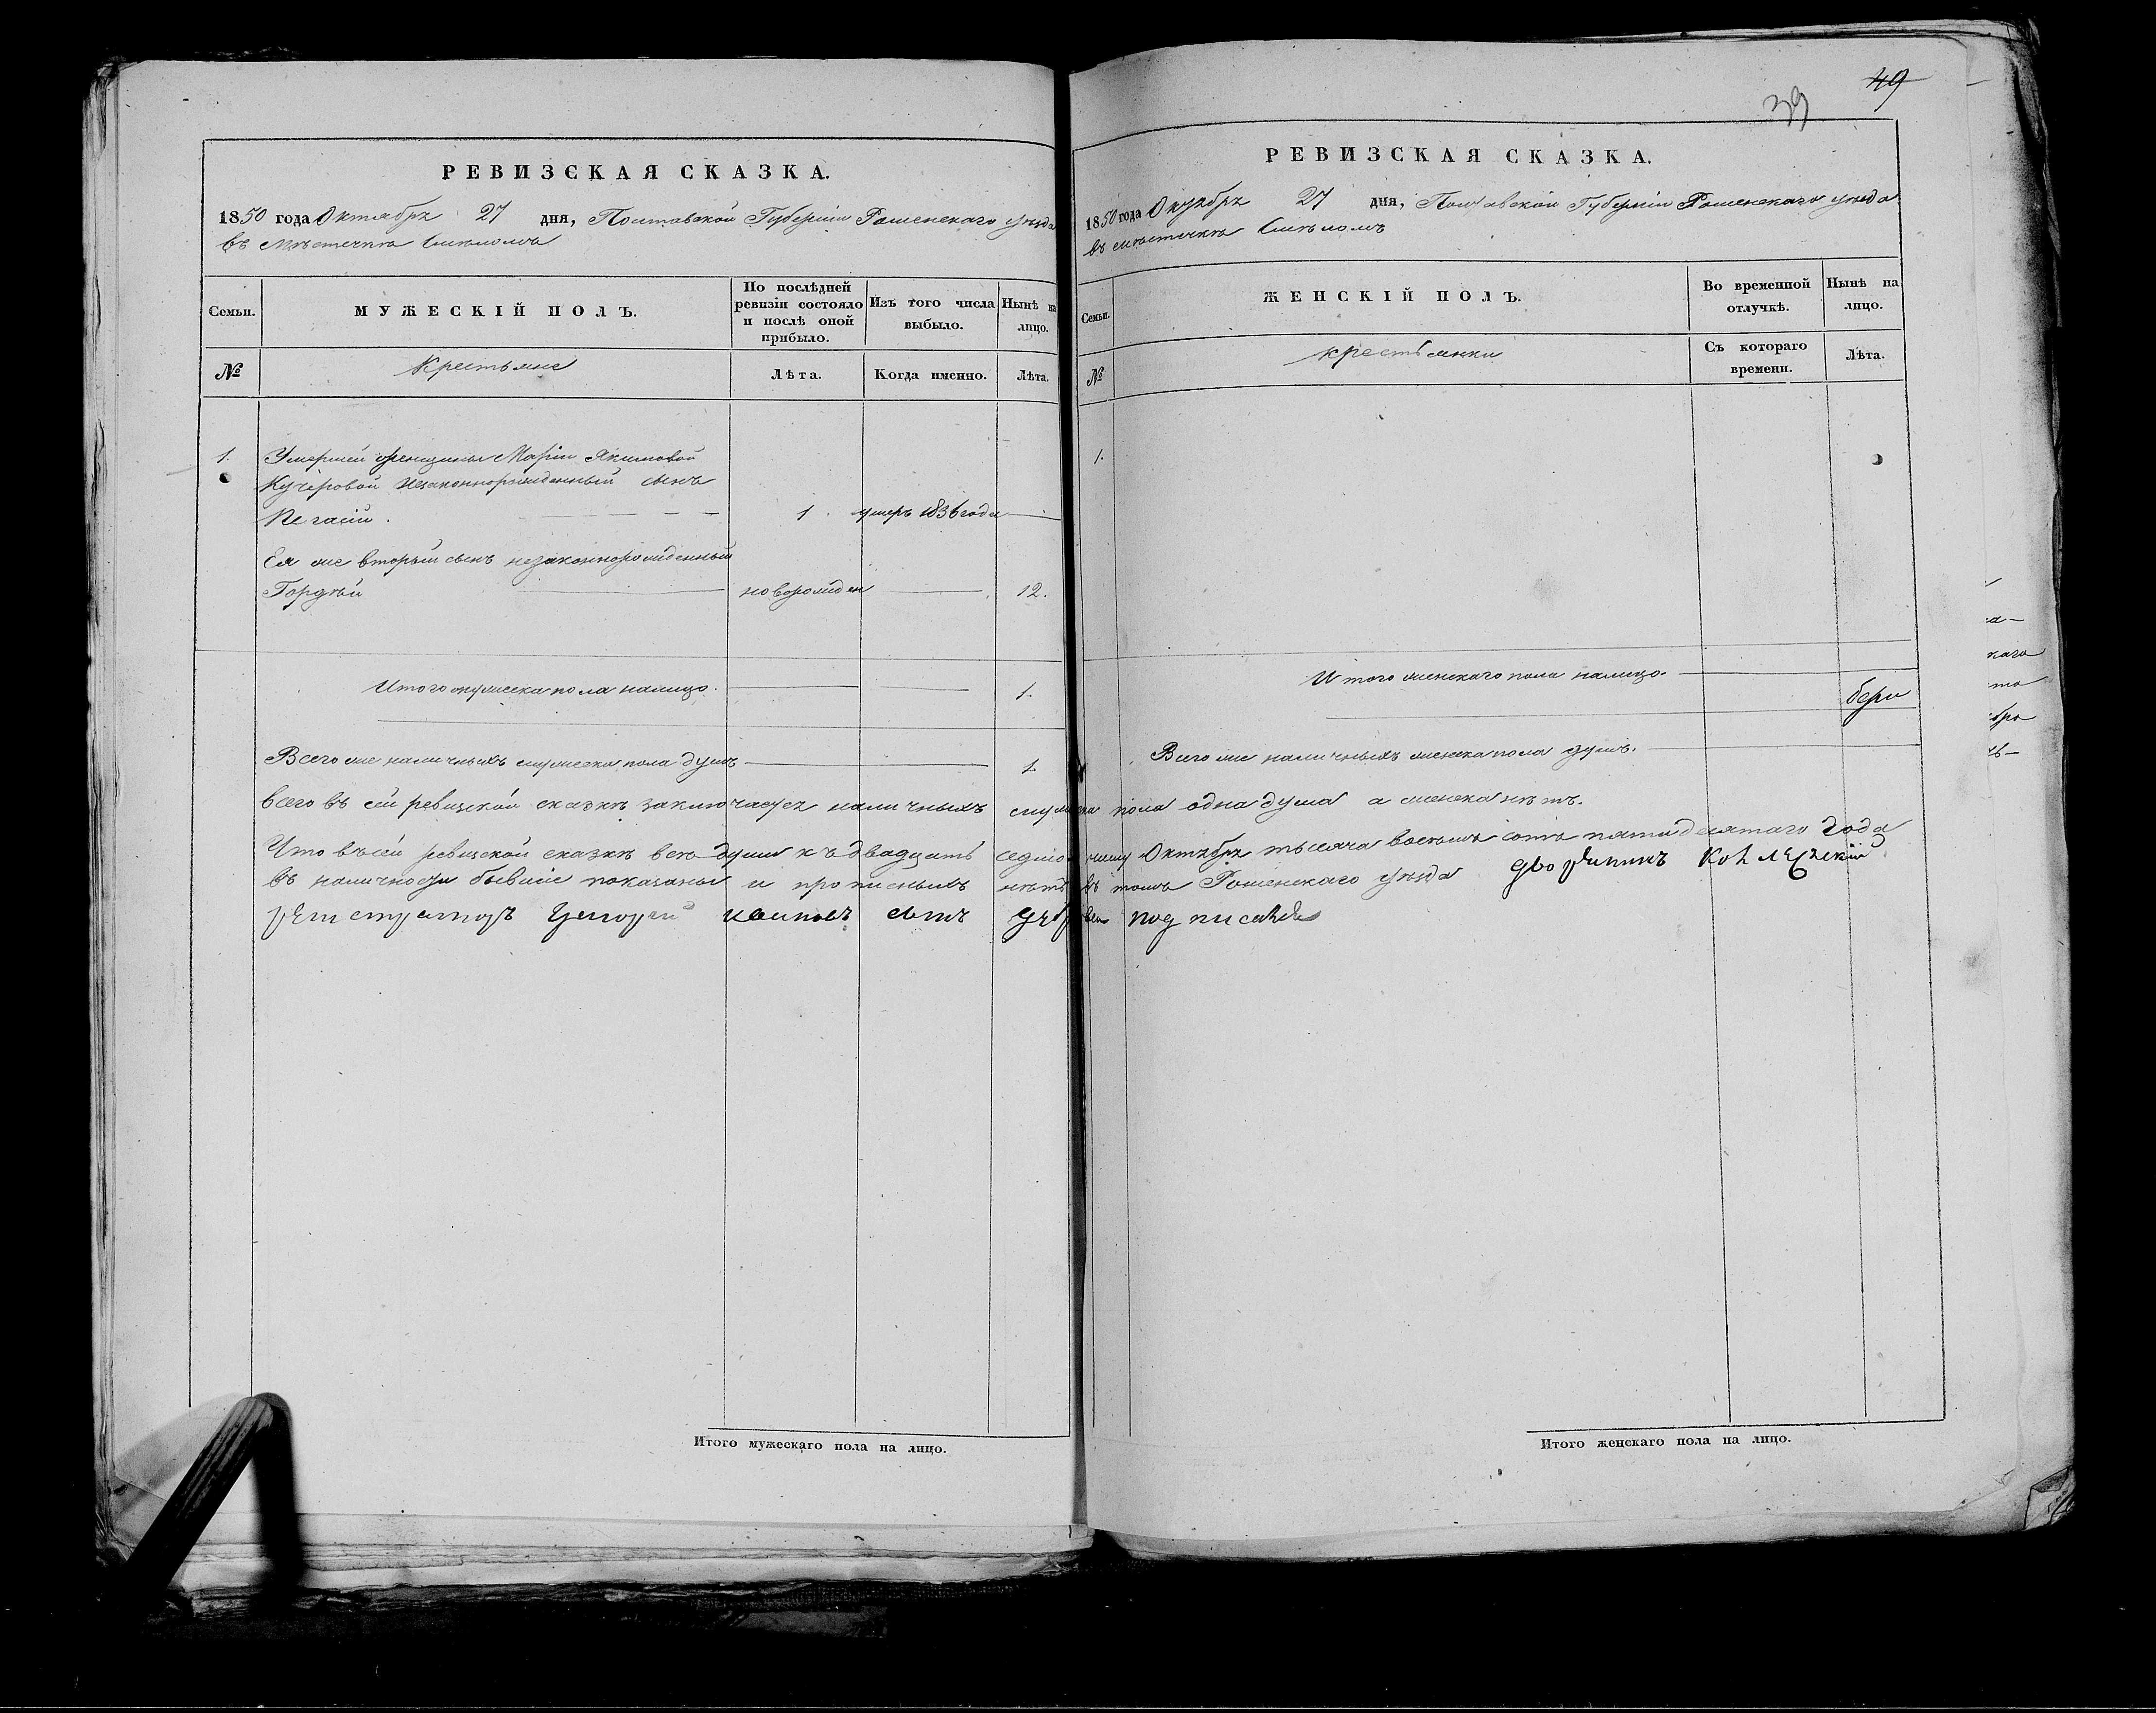 РЕВИЗСКАЯ СКАЗКА.
1850 года Октября 27 дня, Полтавской Губерніи Роменскаго уѣзда
въ мѣстечкѣ Смѣломъ
Семьи.
МУЖЕСКІЙ ПОЛЪ.
По послѣдней
ревизіи состояло
и послѣ оной
прибыло.
Изъ того числа
выбыло.
Нынѣ на
лицо.
№
Крестьяне
Лѣта.
Когда именно.
Лѣта.
1. Умершей женщины Маріи Якимовой
Кучеровой незаконнорожденный сынъ
1. умеръ 1836 года
Ея же вторый сынъ незаконнорожденный
Гордѣй новорожден 12.
Итого мужеска пола налицо. 1.
Всего же наличныхъ мужеска пола душъ 1.
49
39
РЕВИЗСКАЯ СКАЗКА.
1850 года Октября 27 дня, Полтавской Губерніи Роменскаго уѣзда
въ мѣстечкѣ Смѣломъ
Семьи.
ЖЕНСКІЙ ПОЛЪ.
Во временной
отлучкѣ.
Нынѣ на
лицо.
№
крестьянки
Съ котораго
времени.
Лѣта.
1.
Итого женскаго пола налицо.
Всего же наличныхъ женска пола душъ.
всего въ сей ревизской сказкѣ заключается наличныхъ мужеска пола одна душа а женска нѣтъ.
Что въ сей ревизской сказкѣ всѣ души къ двадцать седмому числу Октября тысяча восемь сотъ пятидесятаго года
въ наличности бывшіе показаны и прописныхъ нѣтъ въ томъ Роменскаго уѣзда дворянинъ Колежскій
регистраторъ Григорій сынъ подписался
Итого мужескаго пола на лицо.
Итого женскаго пола на лицо.